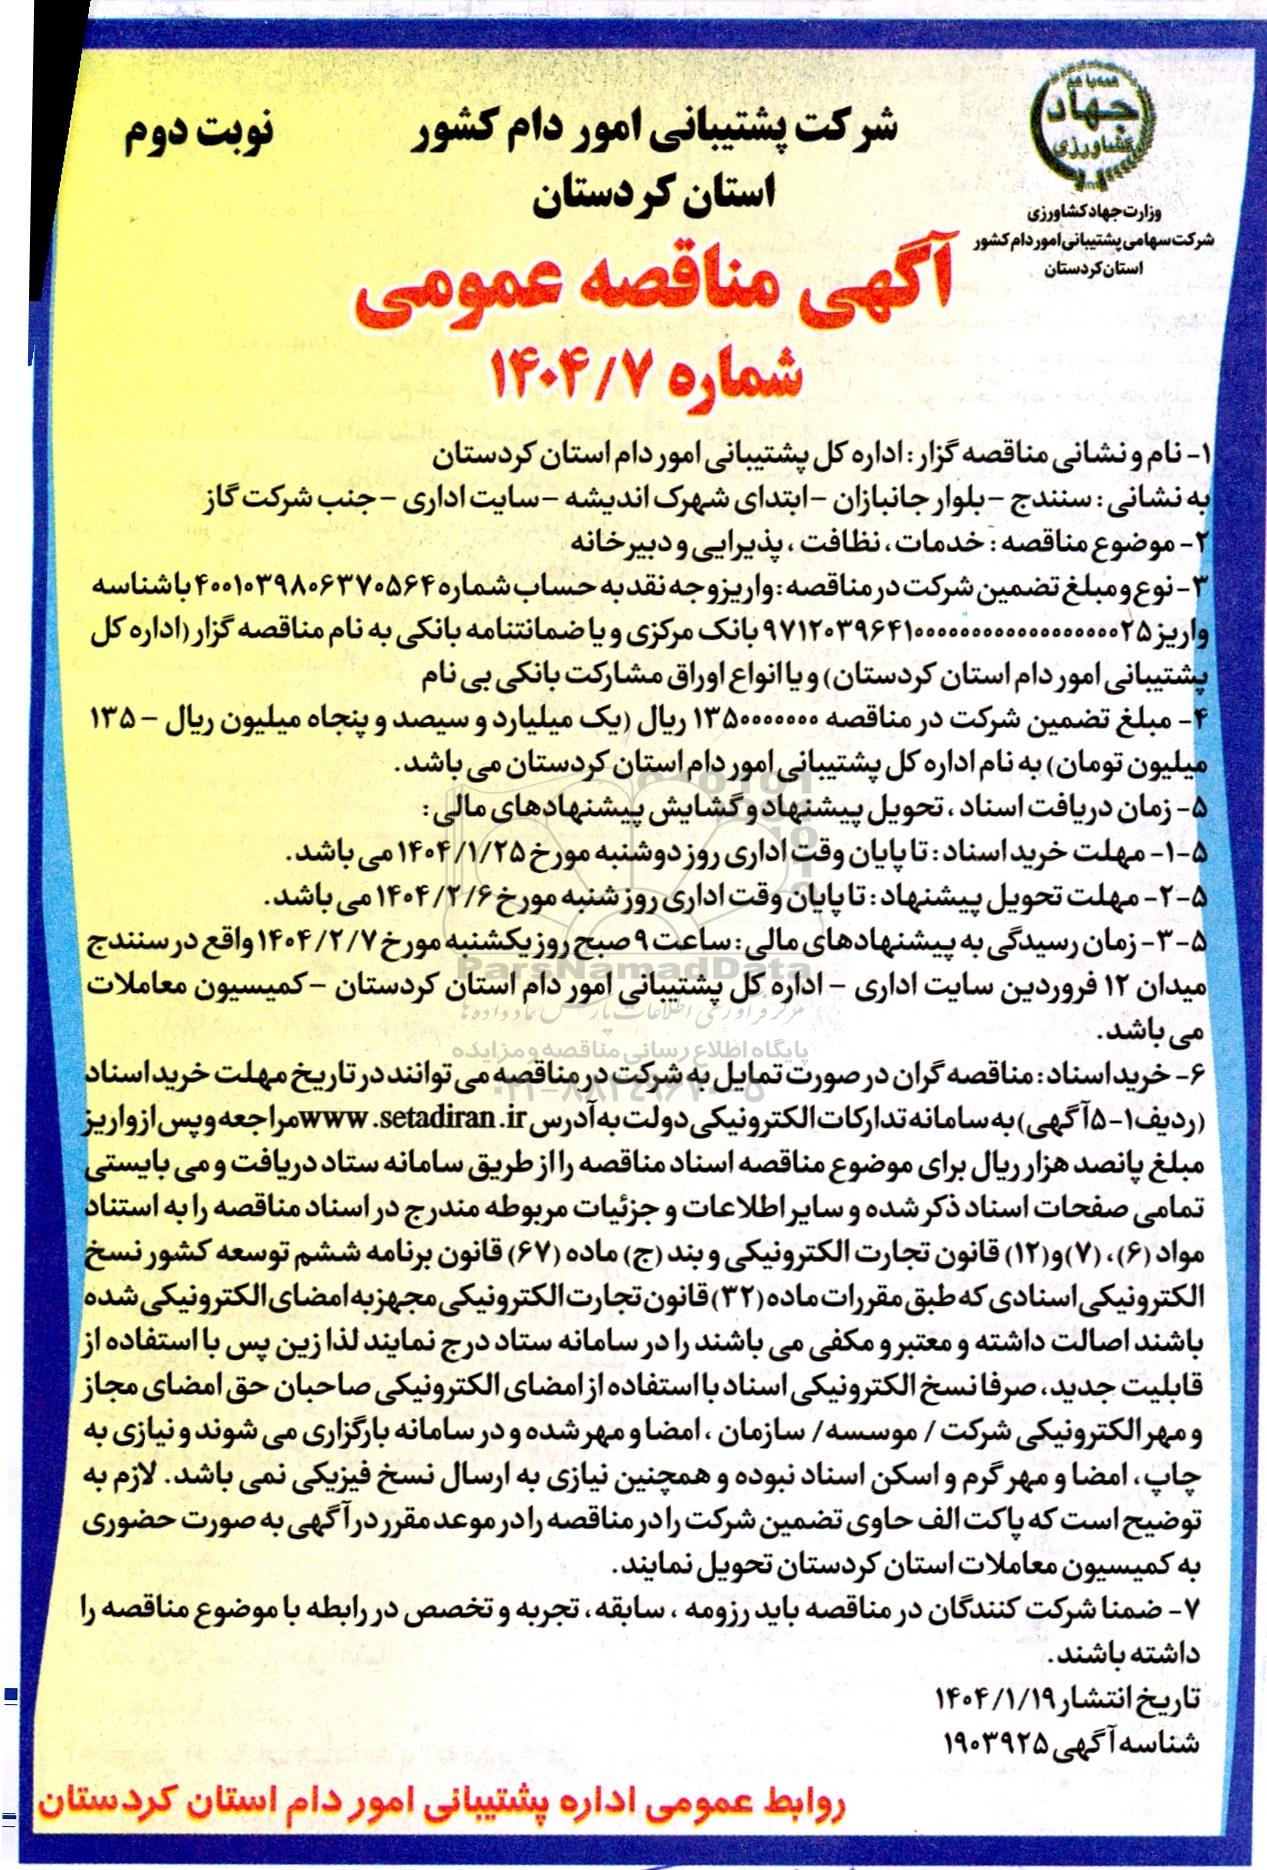 همه با هم
جهاد
کشاورزی
وزارت جهاد کشاورزی
شرکت سهامی پشتیبانی امور دام کشور
استان کردستان
شرکت پشتیبانی امور دام کشور
نوبت دوم
استان کردستان
آگهی مناقصه عمومی
شماره ۱۴۰۴/۷
۱- نام و نشانی مناقصه گزار : اداره کل پشتیبانی امور دام استان کردستان
به نشانی : سنندج – بلوار جانبازان – ابتدای شهرک اندیشه – سایت اداری – جنب شرکت گاز
۲- موضوع مناقصه : خدمات، نظافت ، پذیرایی و دبیرخانه
۳- نوع و مبلغ تضمین شرکت در مناقصه : واریز وجه نقد به حساب شماره ۴۰۰۱۰۳۹۸۰۶۳۷۰۵۶۴ با شناسه
بانک مرکزی و یا ضمانتنامه بانکی به نام مناقصه گزار (اداره کل
پشتیبانی امور دام استان کردستان) و یا انواع اوراق مشارکت بانکی بی نام
۴- مبلغ تضمین شرکت در مناقصه ۱۳۵۰۰۰۰۰۰۰ ریال (یک میلیارد و سیصد و پنجاه میلیون ریال – ۱۳۵
میلیون تومان) به نام اداره کل پشتیبانی امور دام استان کردستان می باشد.
۵- زمان دریافت اسناد ، تحویل پیشنهاد و گشایش پیشنهادهای مالی :
۵-۱- مهلت خرید اسناد : تا پایان وقت اداری روز دوشنبه مورخ ۱۴۰۴/۱/۲۵ می باشد.
۵-۲- مهلت تحویل پیشنهاد : تا پایان وقت اداری روز شنبه مورخ ۱۴۰۴/۲/۶ می باشد.
۵-۳- زمان رسیدگی به پیشنهادهای مالی : ساعت ۹ صبح روز یکشنبه مورخ ۱۴۰۴/۲/۷ واقع در سنندج
میدان ۱۲ فروردین سایت اداری – اداره کل پشتیبانی امور دام استان کردستان – کمیسیون معاملات
می باشد.
ParsNamadData
پایگاه اطلاع رسانی مناقصه و مزایده
۶- خرید اسناد : مناقصه گران در صورت تمایل به شرکت در مناقصه می توانند در تاریخ مهلت خرید اسناد
(ردیف ۱-۵ آگهی) به سامانه تدارکات الکترونیکی دولت به آدرس www.setadiran.ir مراجعه و پس از واریز
مبلغ پانصد هزار ریال برای موضوع مناقصه اسناد مناقصه را از طریق سامانه ستاد دریافت و می بایستی
تمامی صفحات اسناد ذکر شده و سایر اطلاعات و جزئیات مربوطه مندرج در اسناد مناقصه را به استناد
مواد (۶)، (۷) و (۱۲) قانون تجارت الکترونیکی و بند (ج) ماده (۶۷) قانون برنامه ششم توسعه کشور نسخ
الکترونیکی اسنادی که طبق مقررات ماده (۳۲) قانون تجارت الکترونیکی مجهز به امضای الکترونیکی شده
باشند اصالت داشته و معتبر و مکفی می باشند را در سامانه ستاد درج نمایند لذا زین پس با استفاده از
قابلیت جدید، صرفا نسخ الکترونیکی اسناد با استفاده از امضای الکترونیکی صاحبان حق امضای مجاز
و مهر الکترونیکی شرکت / موسسه / سازمان ، امضا و مهر شده و در سامانه بارگزاری می شوند و نیازی به
چاپ، امضا و مهر گرم و اسکن اسناد نبوده و همچنین نیازی به ارسال نسخ فیزیکی نمی باشد. لازم به
توضیح است که پاکت الف حاوی تضمین شرکت را در مناقصه را در موعد مقرر در آگهی به صورت حضوری
به کمیسیون معاملات استان کردستان تحویل نمایند.
۷- ضمنا شرکت کنندگان در مناقصه باید رزومه ، سابقه ، تجربه و تخصص در رابطه با موضوع مناقصه را
داشته باشند.
تاریخ انتشار ۱۴۰۴/۱/۱۹
شناسه آگهی ۱۹۰۳۹۲۵
روابط عمومی اداره پشتیبانی امور دام استان کردستان